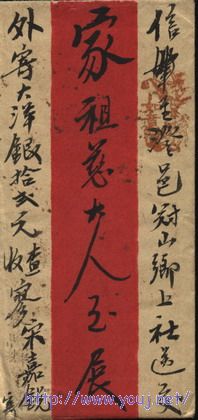 信至澄邑冠山鄉上社送交
家祖慈大人玉展
外寄大洋銀拾弍元查收宋嘉銳
http://www.youj.net/